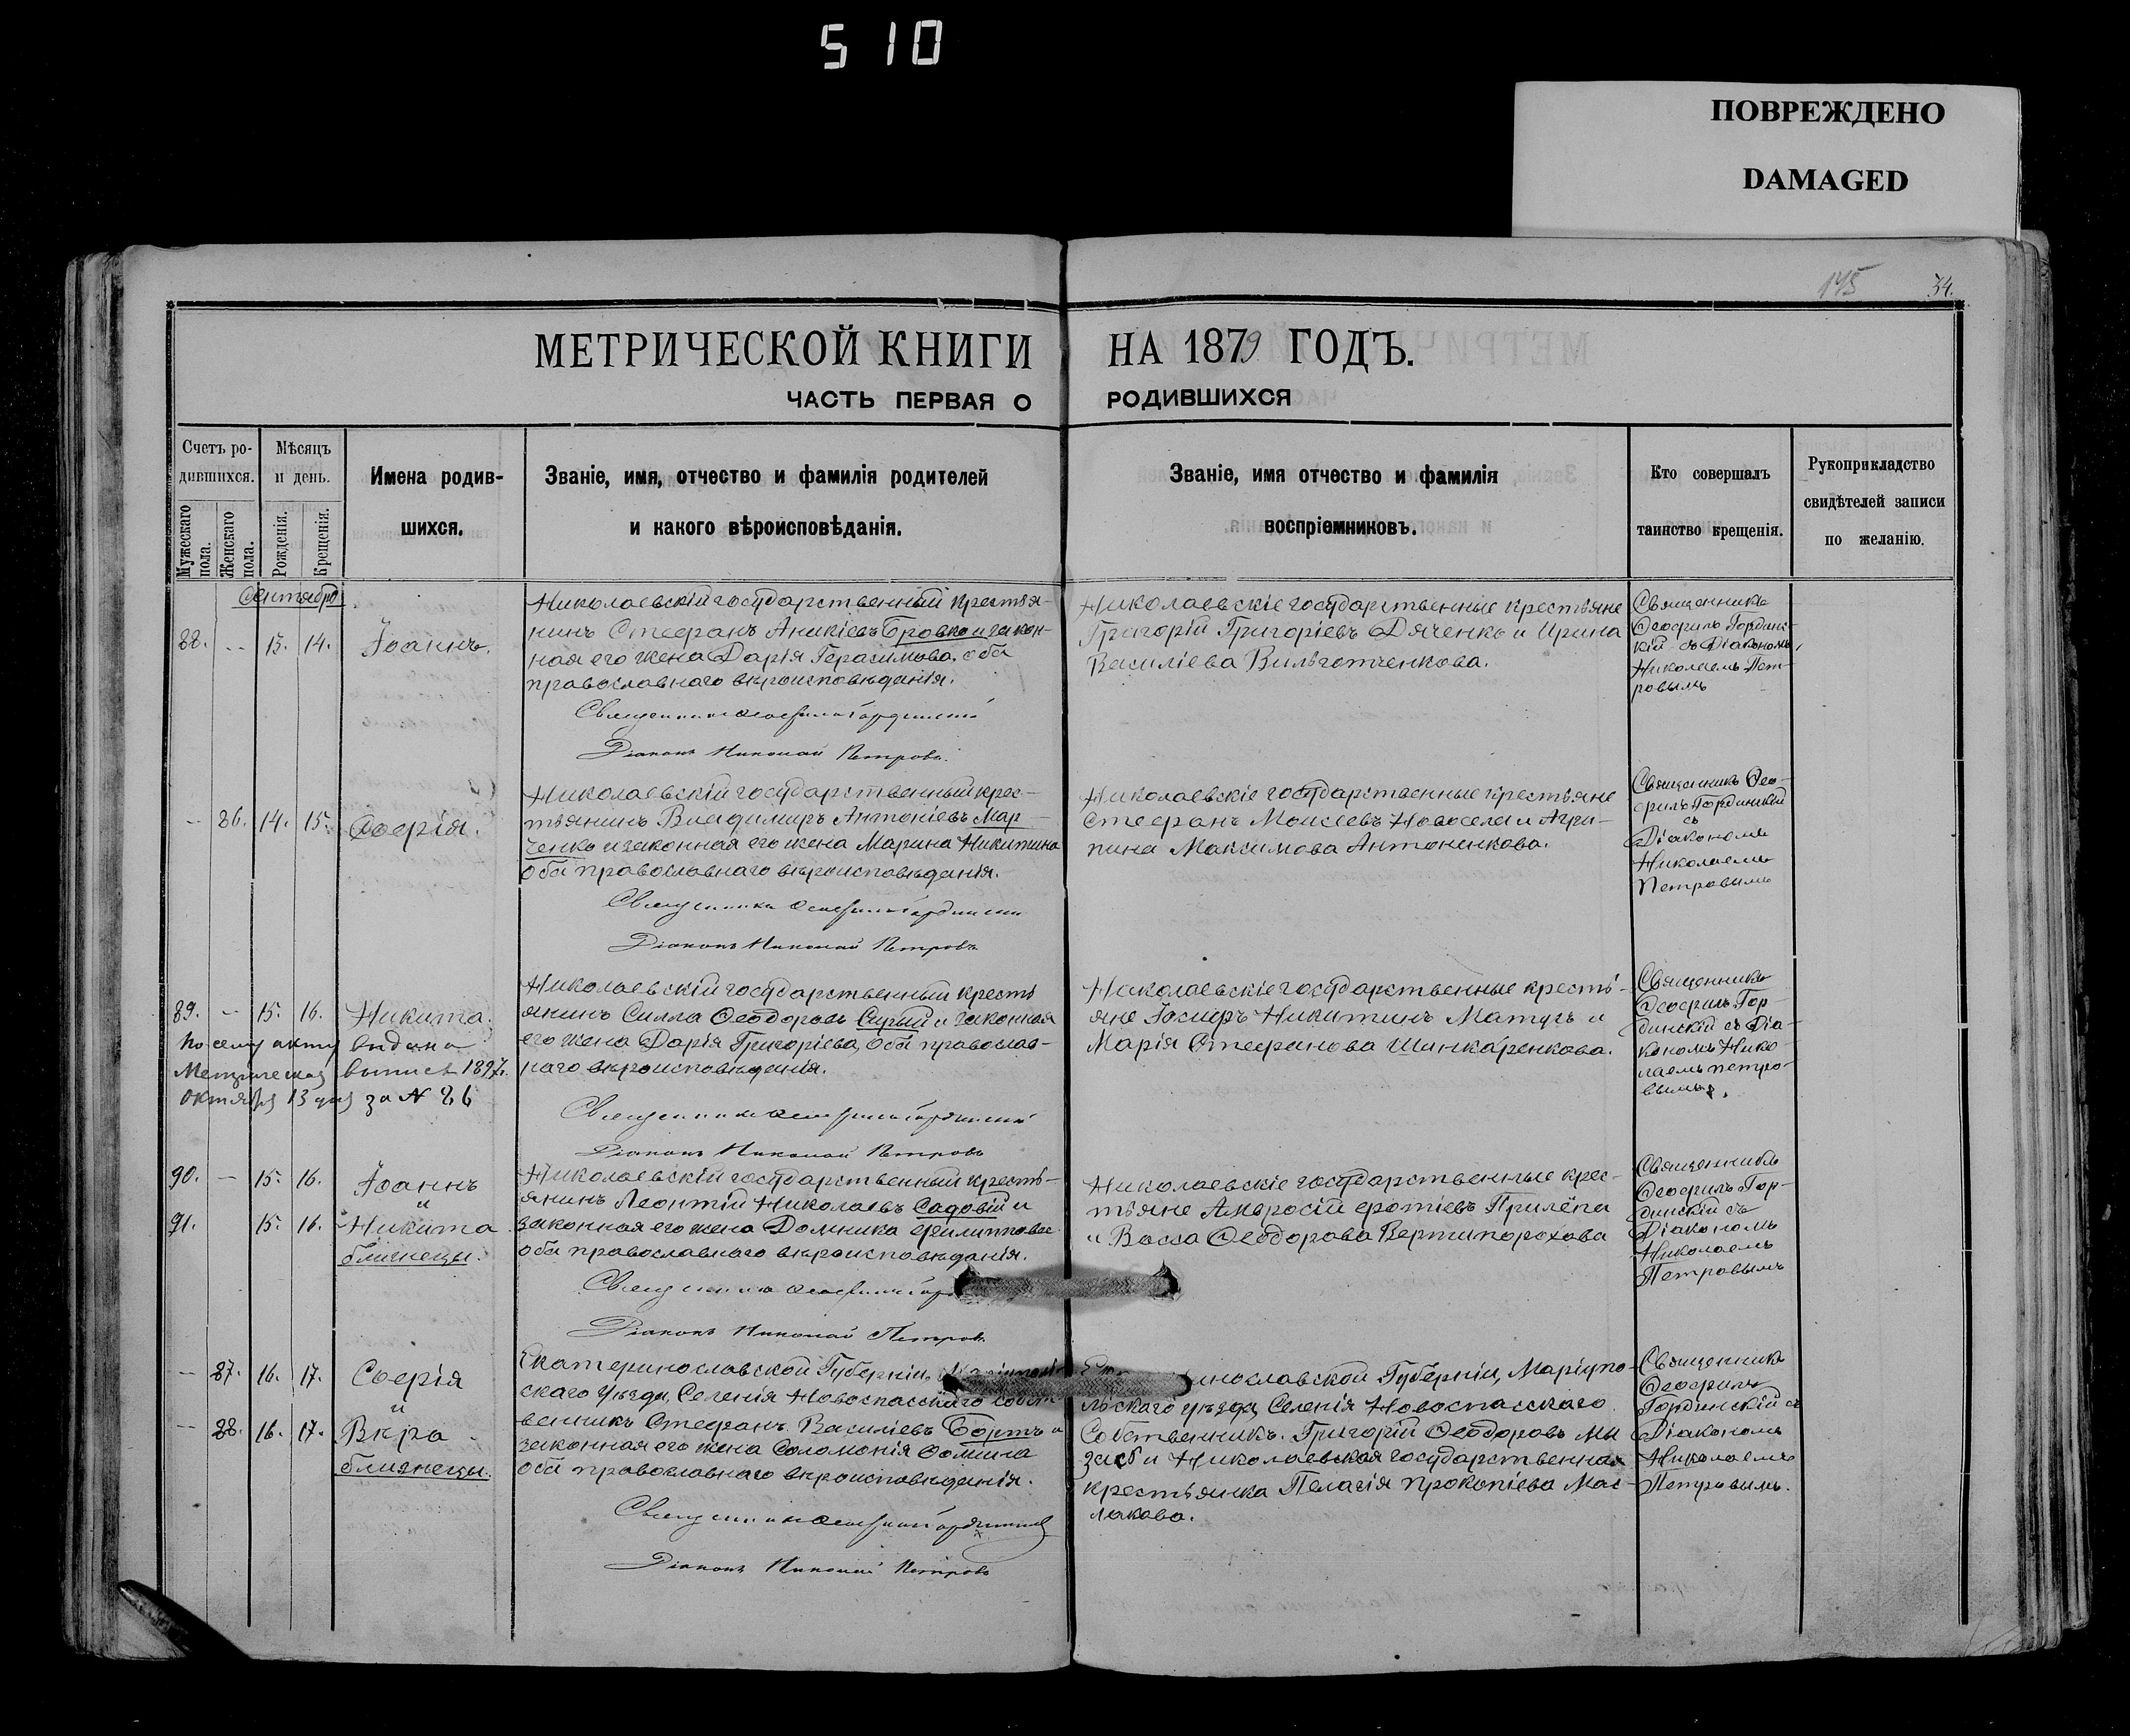 510
ПОВРЕЖДЕНО
DAMAGED
145
34.
МЕТРИЧЕСКОЙ КНИГИ НА 1879 ГОДЪ.
ЧАСТЬ ПЕРВАЯ О РОДИВШИХСЯ
Счетъ ро-
дившихся.
Мужескаго пола.
Женскаго пола.
Мѣсяцъ
и день.
Рожденія.
Крещенія.
Имена родив-
шихся.
Званіе, имя, отчество и фамилія родителей
и какого вѣроисповѣданія.
Званіе, имя отчество и фамилія
воспріемниковъ.
Кто совершалъ
таинство крещенія.
Рукоприкладство
свидѣтелей записи
по желанію.
Сентябрь
88. -- 13. 14. Іоаннъ.
Николаевскій государственный крестья-
нинъ Стефанъ Аникіевъ Бровко и закон-
ная его жена Дарія Герасимова, оба
православнаго вѣроисповѣданія.
Священникъ Ѳеофилъ Гординскій
Діаконъ Николай Петровъ.
Николаевскіе государственные крестьяне
Григорій Григоріевъ Дяченко и Ирина
Василіева
Священникъ
Ѳеофилъ Гординс-
кій съ Діакономъ
Николаемъ Пет-
ровымъ
-- 86. 14. 15. Софія.
Николаевскій государственный крес-
тьянинъ Владимиръ Антоніевъ Мар-
ченко и законная его жена Марина Никитина
оба православнаго вѣроисповѣданія.
Священникъ Ѳеофилъ Гординскій
Діаконъ Николай Петровъ
Николаевскіе государственные крестьяне
Стефанъ Моисеевъ Новосела и Агри-
пина Максимова Антоненкова.
Священникъ Ѳео-
филъ Гординскій
съ
Діакономъ
Николаемъ
Петровымъ
89. -- 15. 16. Никита.
По сему акту выдана
Метрическая выпись 1897 г.
Октября 13 дня за № 86
Николаевскій государственный кресть
янинъ Силла Ѳеодоровъ Сирый и законная
его жена Дарія Григоріева, оба православ-
наго вѣроисповѣданія.
Священникъ Ѳеофилъ Гординскій
Діаконъ Николай Петровъ
Николаевскіе государственные кресть-
яне Іосифъ Никитинъ Матузъ и
Марія Стефанова Шинкаренкова.
Священникъ
Ѳеофилъ Гор-
динскій съ Діа-
кономъ Нико-
лаемъ Петро-
вымъ.
90. -- 15. 16. Іоаннъ
и
91. 15. 16. Никита
близнецы.
Николаевскій государственный кресть-
янинъ Леонтій Николаевъ Садовій и
законная его жена Домника Филиппова
оба православнаго вѣроисповѣданія.
Священникъ Ѳеофилъ
Діаконъ Николай Петровъ
Николаевскіе государственные крес-
тьяне Амвросій Фотіевъ Прилёпа
и Васса Ѳеодорова Вертипорохова
Священникъ
Ѳеофилъ Гор-
динскій съ
Діакономъ
Николаемъ
Петровымъ
-- 87. 16. 17. Софія
и
-- 88. 16. 17. Вѣра
близнецы.
Екатеринославской Губерніи,
скаго уѣзда, Селенія Новоспасскаго Собст
венникъ Стефанъ Василіевъ Бортъ и
законная его жена Соломонія Фомина
оба православнаго вѣроисповѣданія.
Священникъ Ѳеофилъ Гординскій
Діаконъ Николай Петровъ
инославской Губерніи, Маріупо-
льскаго уѣзда, Селенія Новоспасскаго
Собственникъ. Григорій Ѳеодоровъ Мы
засъ и Николаевская государственная
крестьянка Пелагія Прокопіева Мас-
лакова.
Священникъ
Ѳеофилъ
Гординскій съ
Діакономъ
Николаемъ
Петровымъ.